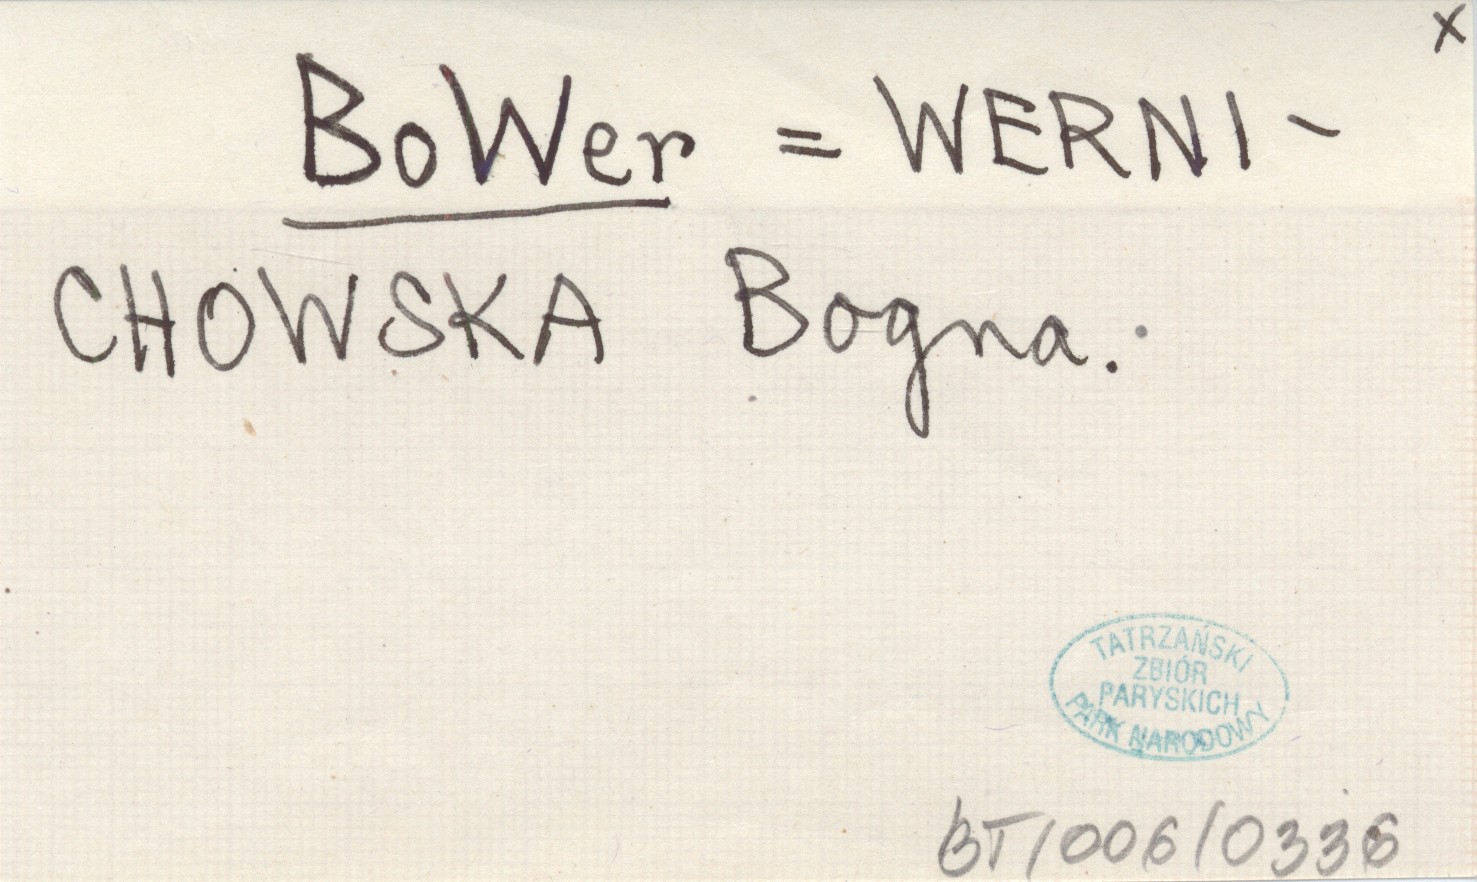 x
BoWer = WERNI-
CHOWSKA Bogna.
TATRZAŃSKI
ZBIÓR
PARYSKICH
PARK NARODOWY
BT/006/0336